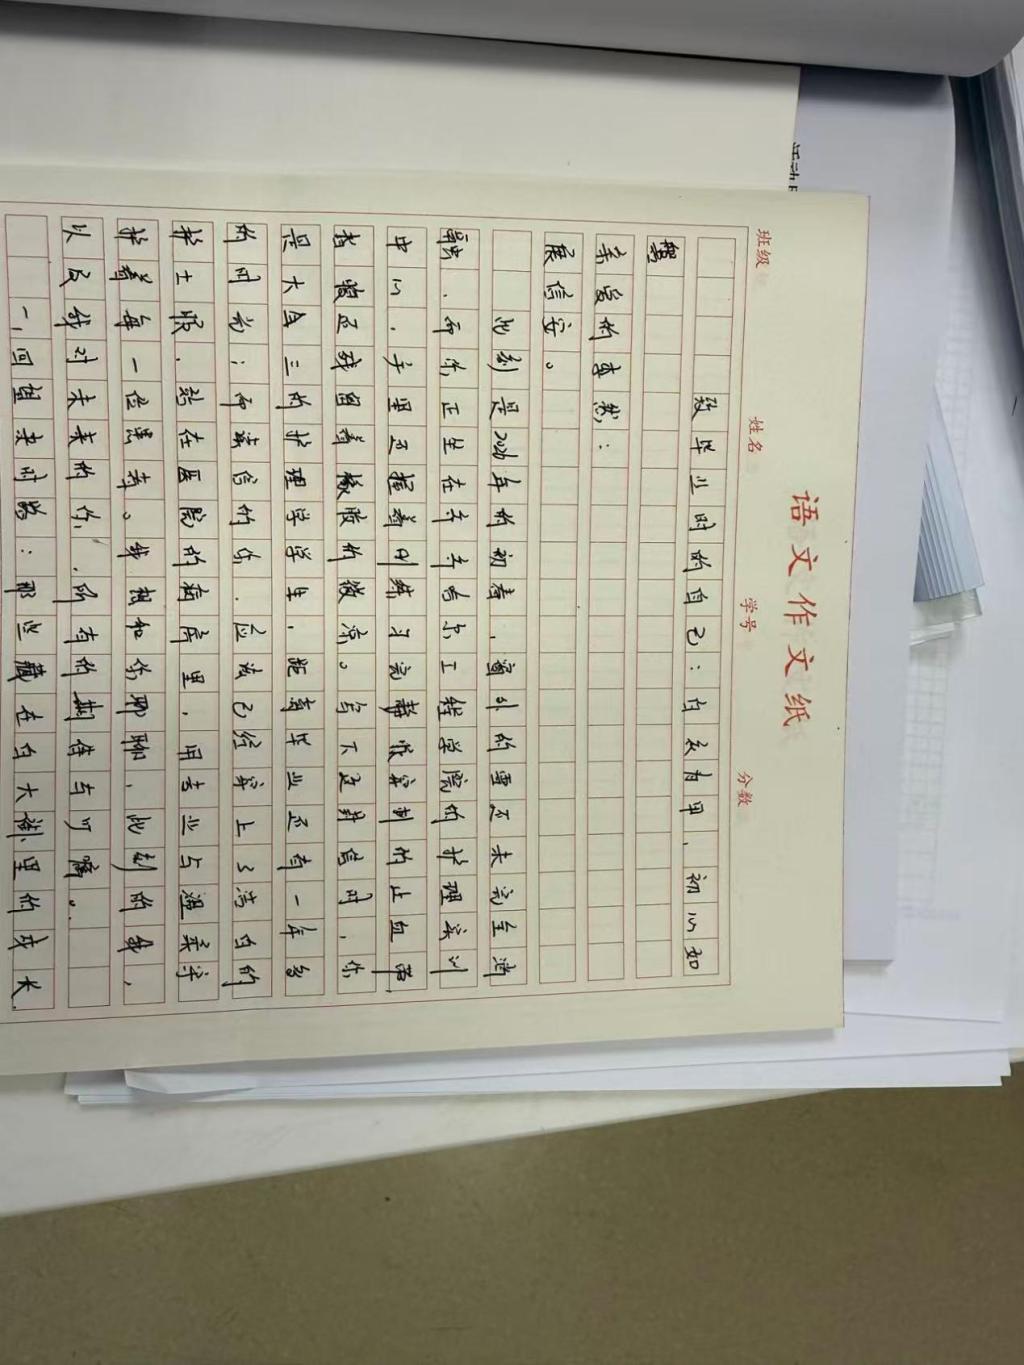 语文作文纸
班级 姓名 学号 分数
致毕业时的自己：白衣为甲，初心如
磐
亲爱的李然：
展信安。
此刻是2026年的初春，窗外的雪还未完全消
融，而你正坐在齐齐哈尔工程学院的护理实训
中心，手里还握着刚练习完静脉穿刺的止血带，
指腹还残留着橡胶的微凉。写下这封信时，你
是大三的护理学学生，距离毕业还有一年多
的时光；而读信的你，应该已经穿上了洁白的
护士服，站在医院的病房里，用专业与温柔守
护着每一位患者。我想和你聊聊，此刻的我，
以及我对未来的你，所有的期待与叮嘱。
一，回望来时路：那些藏在白大褂里的成长
活动